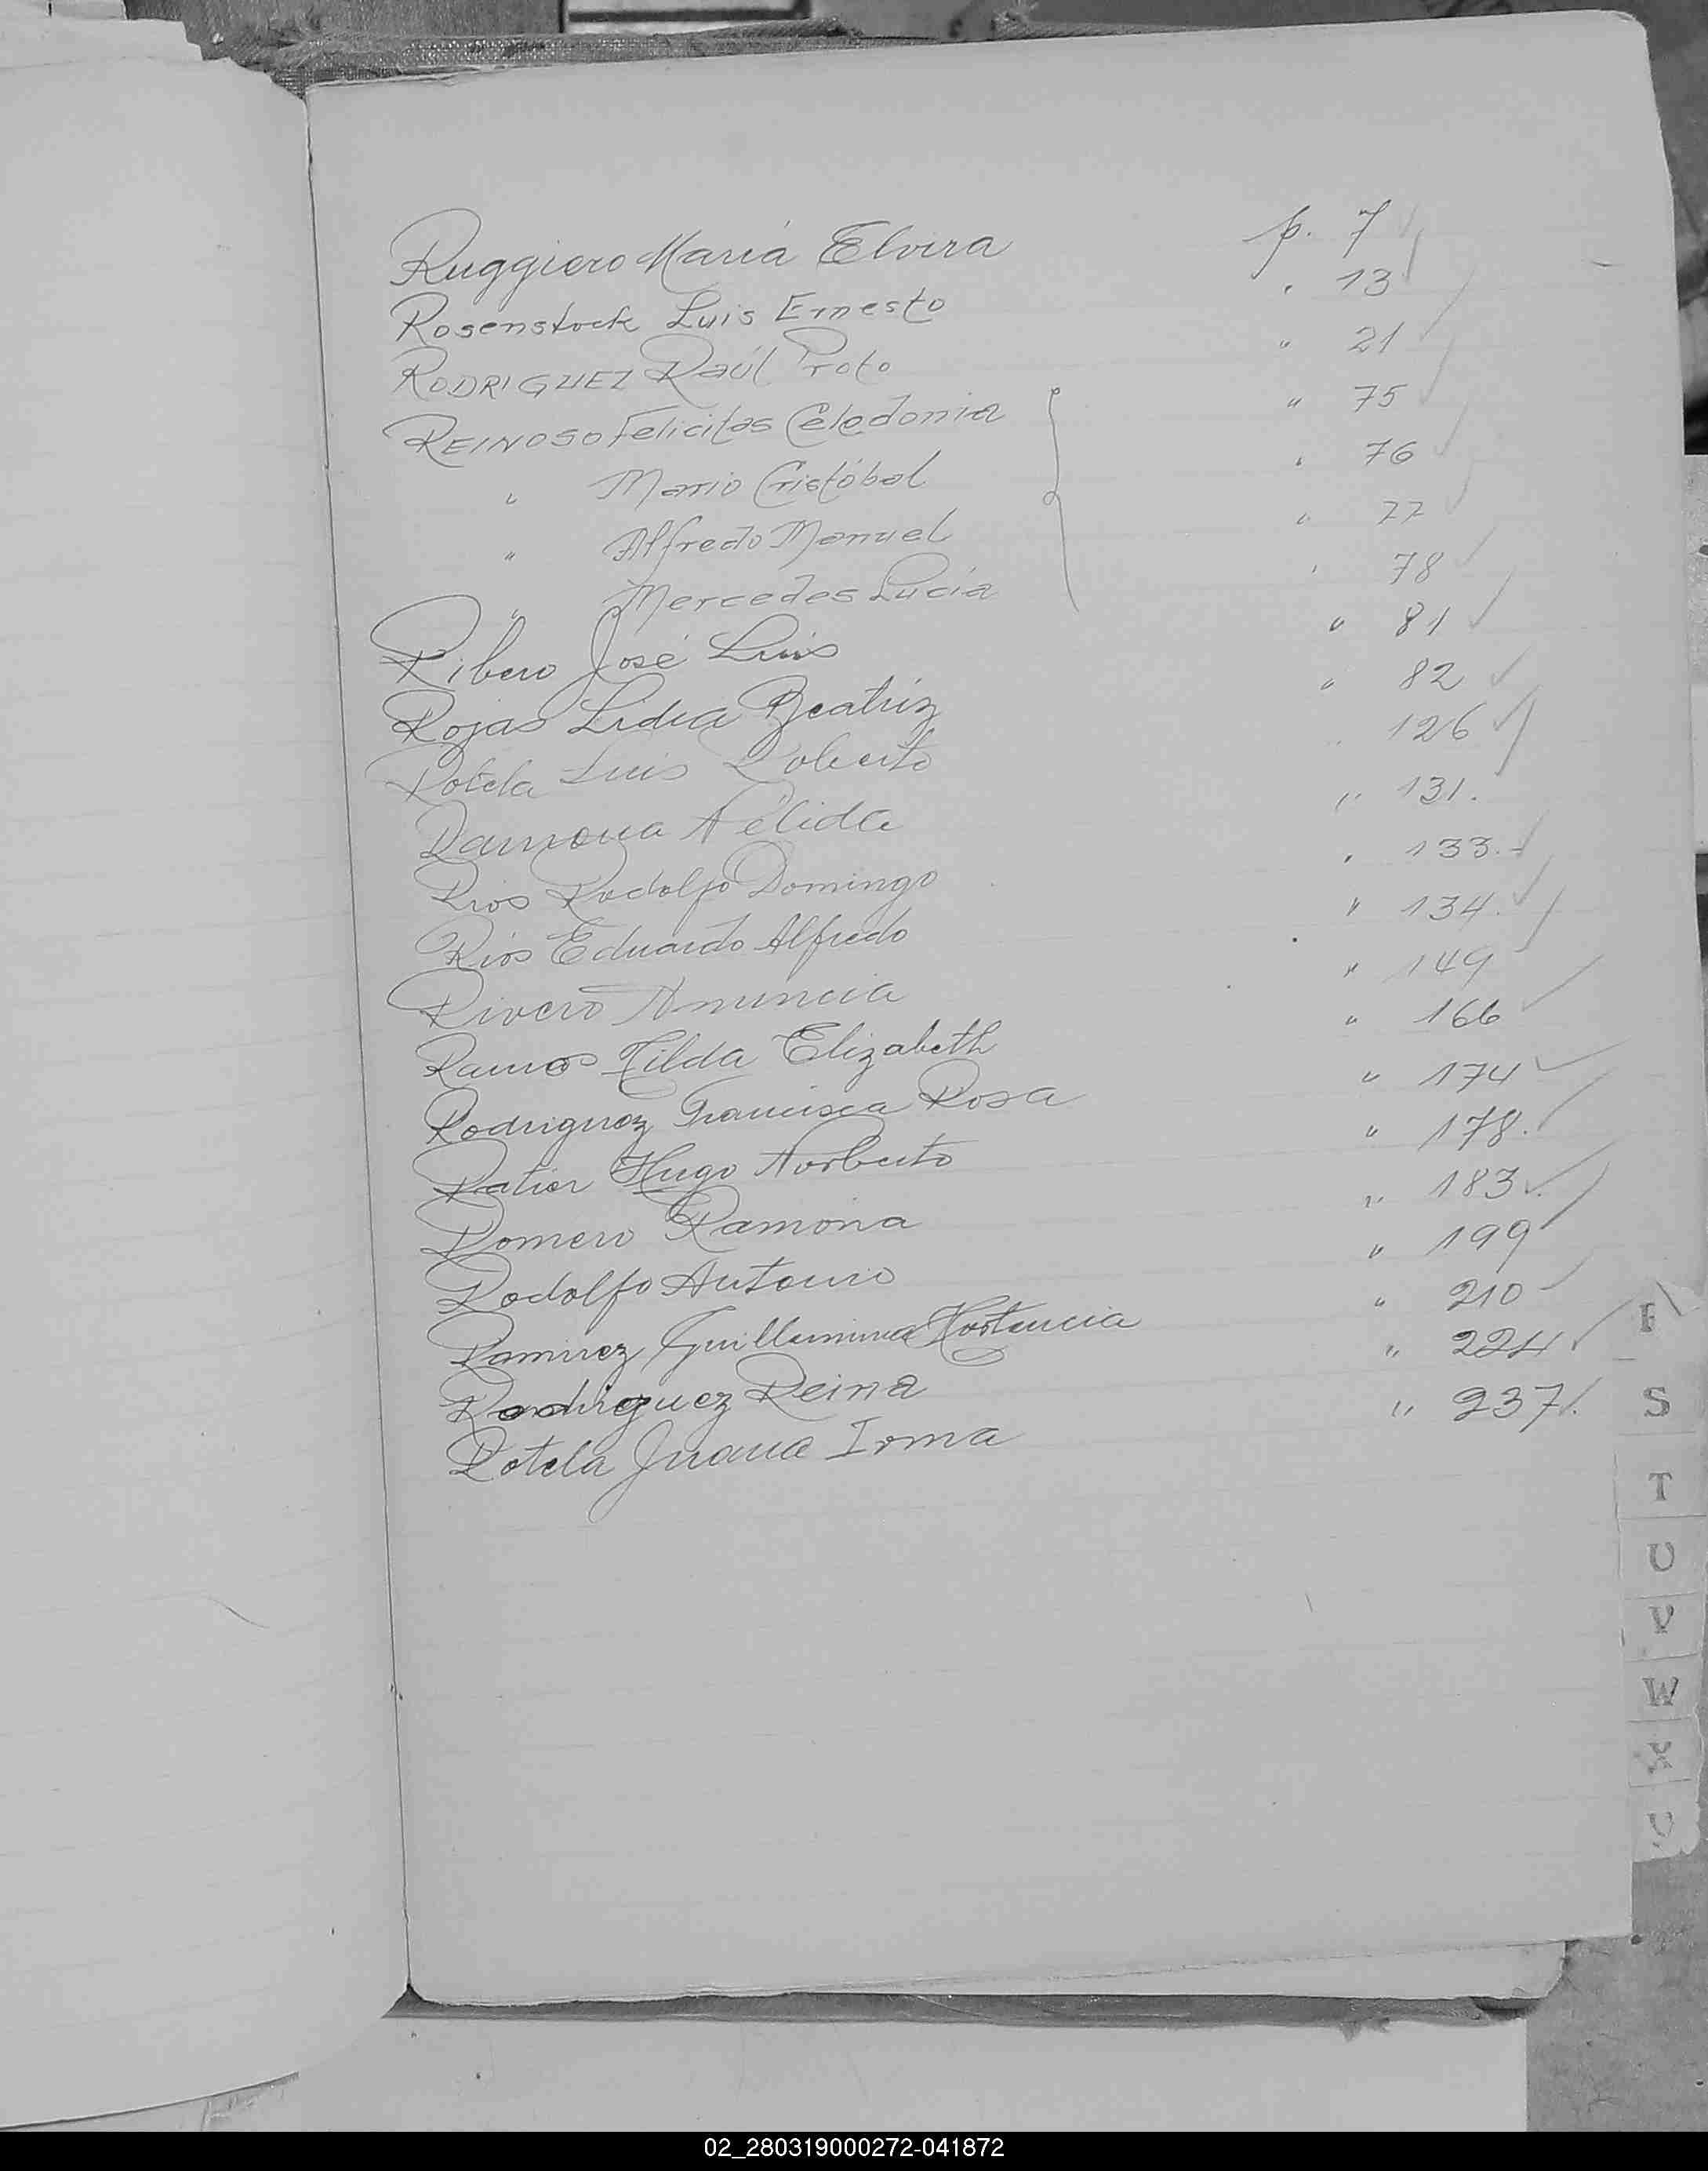 Ruggiero María Elvira p. 7
Rosenstock Luis Ernesto " 13
RODRIGUEZ Raúl Proto " 21
REINOSO Felicitas Celedonia " 75
" Mario Cristóbal " 76
" Alfredo Manuel " 77
" Mercedes Lucía " 78
Ribero José Luis " 81
Rojas Lidia Beatriz " 82
Rotela Luis Roberto " 126
Ramona Nélida " 131.
Rios Rodolfo Domingo " 133.-
Rios Eduardo Alfredo " 134.
Rivero Anuncia " 149
Ramos Tilda Elizabeth " 166
Rodriguez Francisca Rosa " 174
Ratier Hugo Norberto " 178.
Romero Ramona " 183.
Rodolfo Antonio " 199
Ramirez Guillermina Hortencia " 210
Rodriguez Reina " 224
Rotela Juana Irma " 237.
S
T
U
V
W
X
02_280319000272-041872